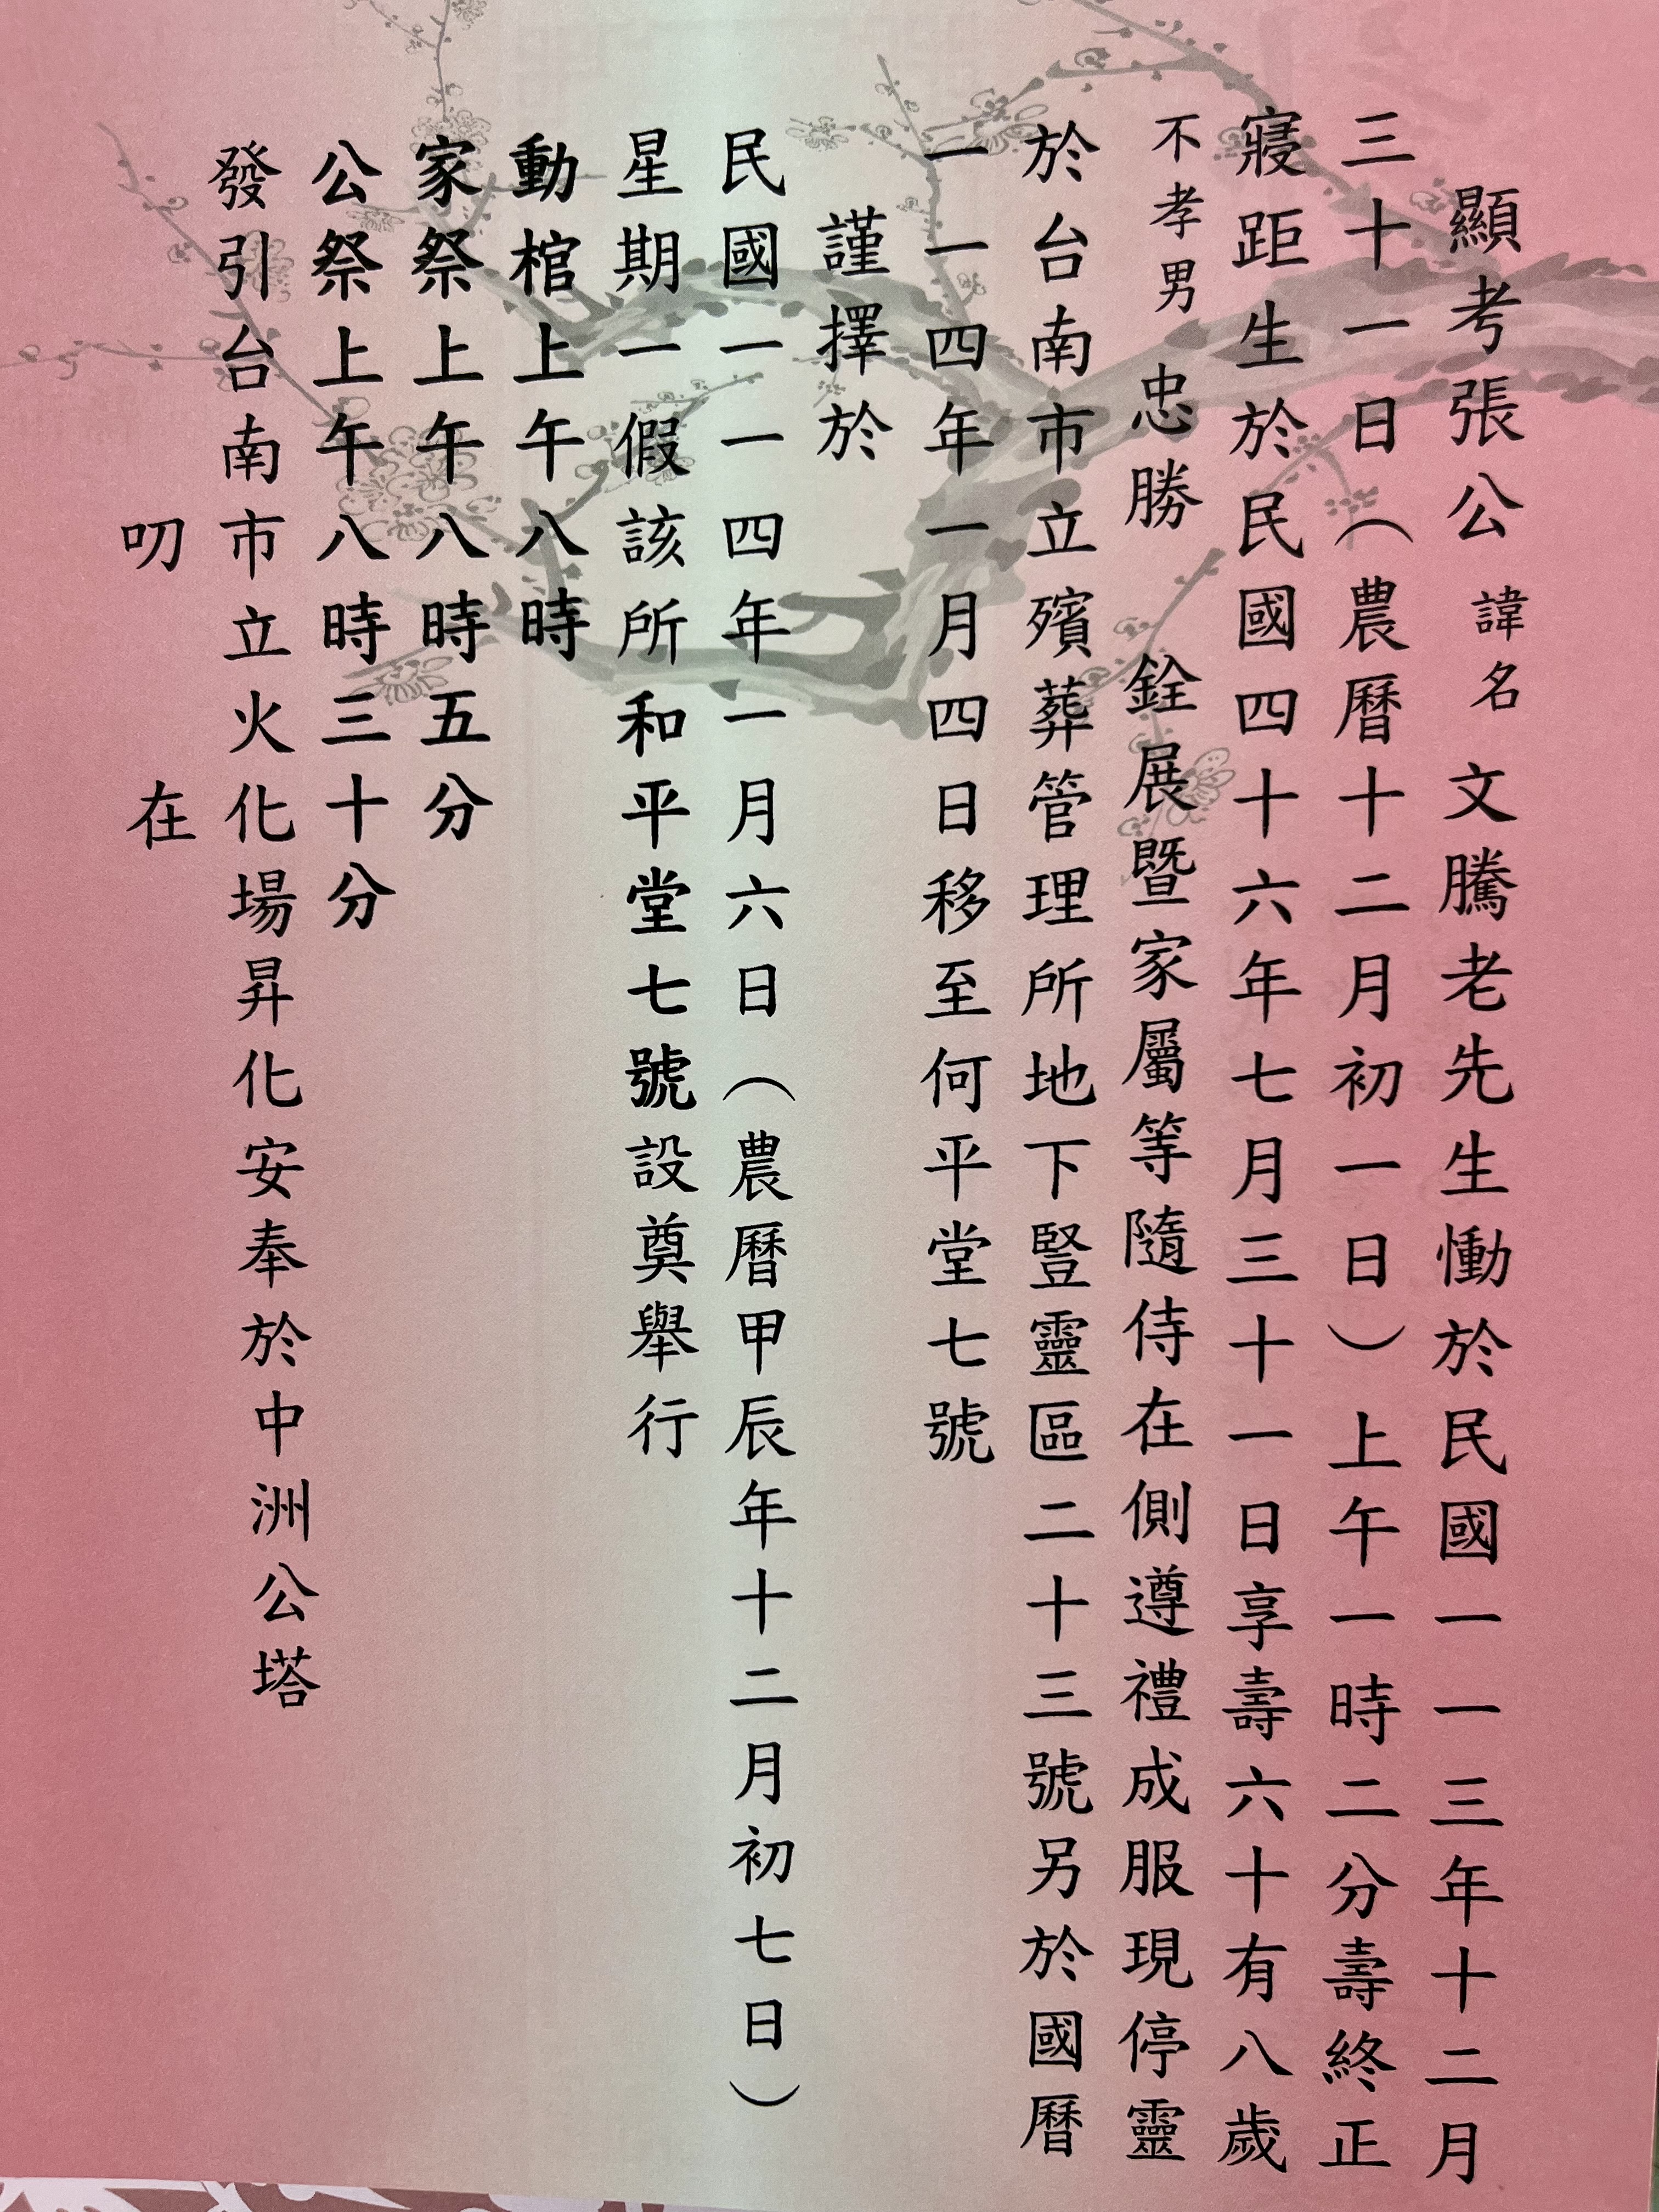 顯考張公 諱名 文騰老先生慟於民國一一三年十二月
三十一日（農曆十二月初一日）上午一時二分壽終正
寢距生於民國四十六年七月三十一日享壽六十有八歲
不孝男 忠勝 銓展暨家屬等隨侍在側遵禮成服現停靈
於台南市立殯葬管理所地下豎靈區二十三號另於國曆
一一四年一月四日移至何平堂七號
謹擇於
民國一一四年一月六日（農曆甲辰年十二月初七日）
星期一假該所和平堂七號設奠舉行
動棺上午八時
家祭上午八時五分
公祭上午八時三十分
發引台南市立火化場昇化安奉於中洲公塔
叨 在